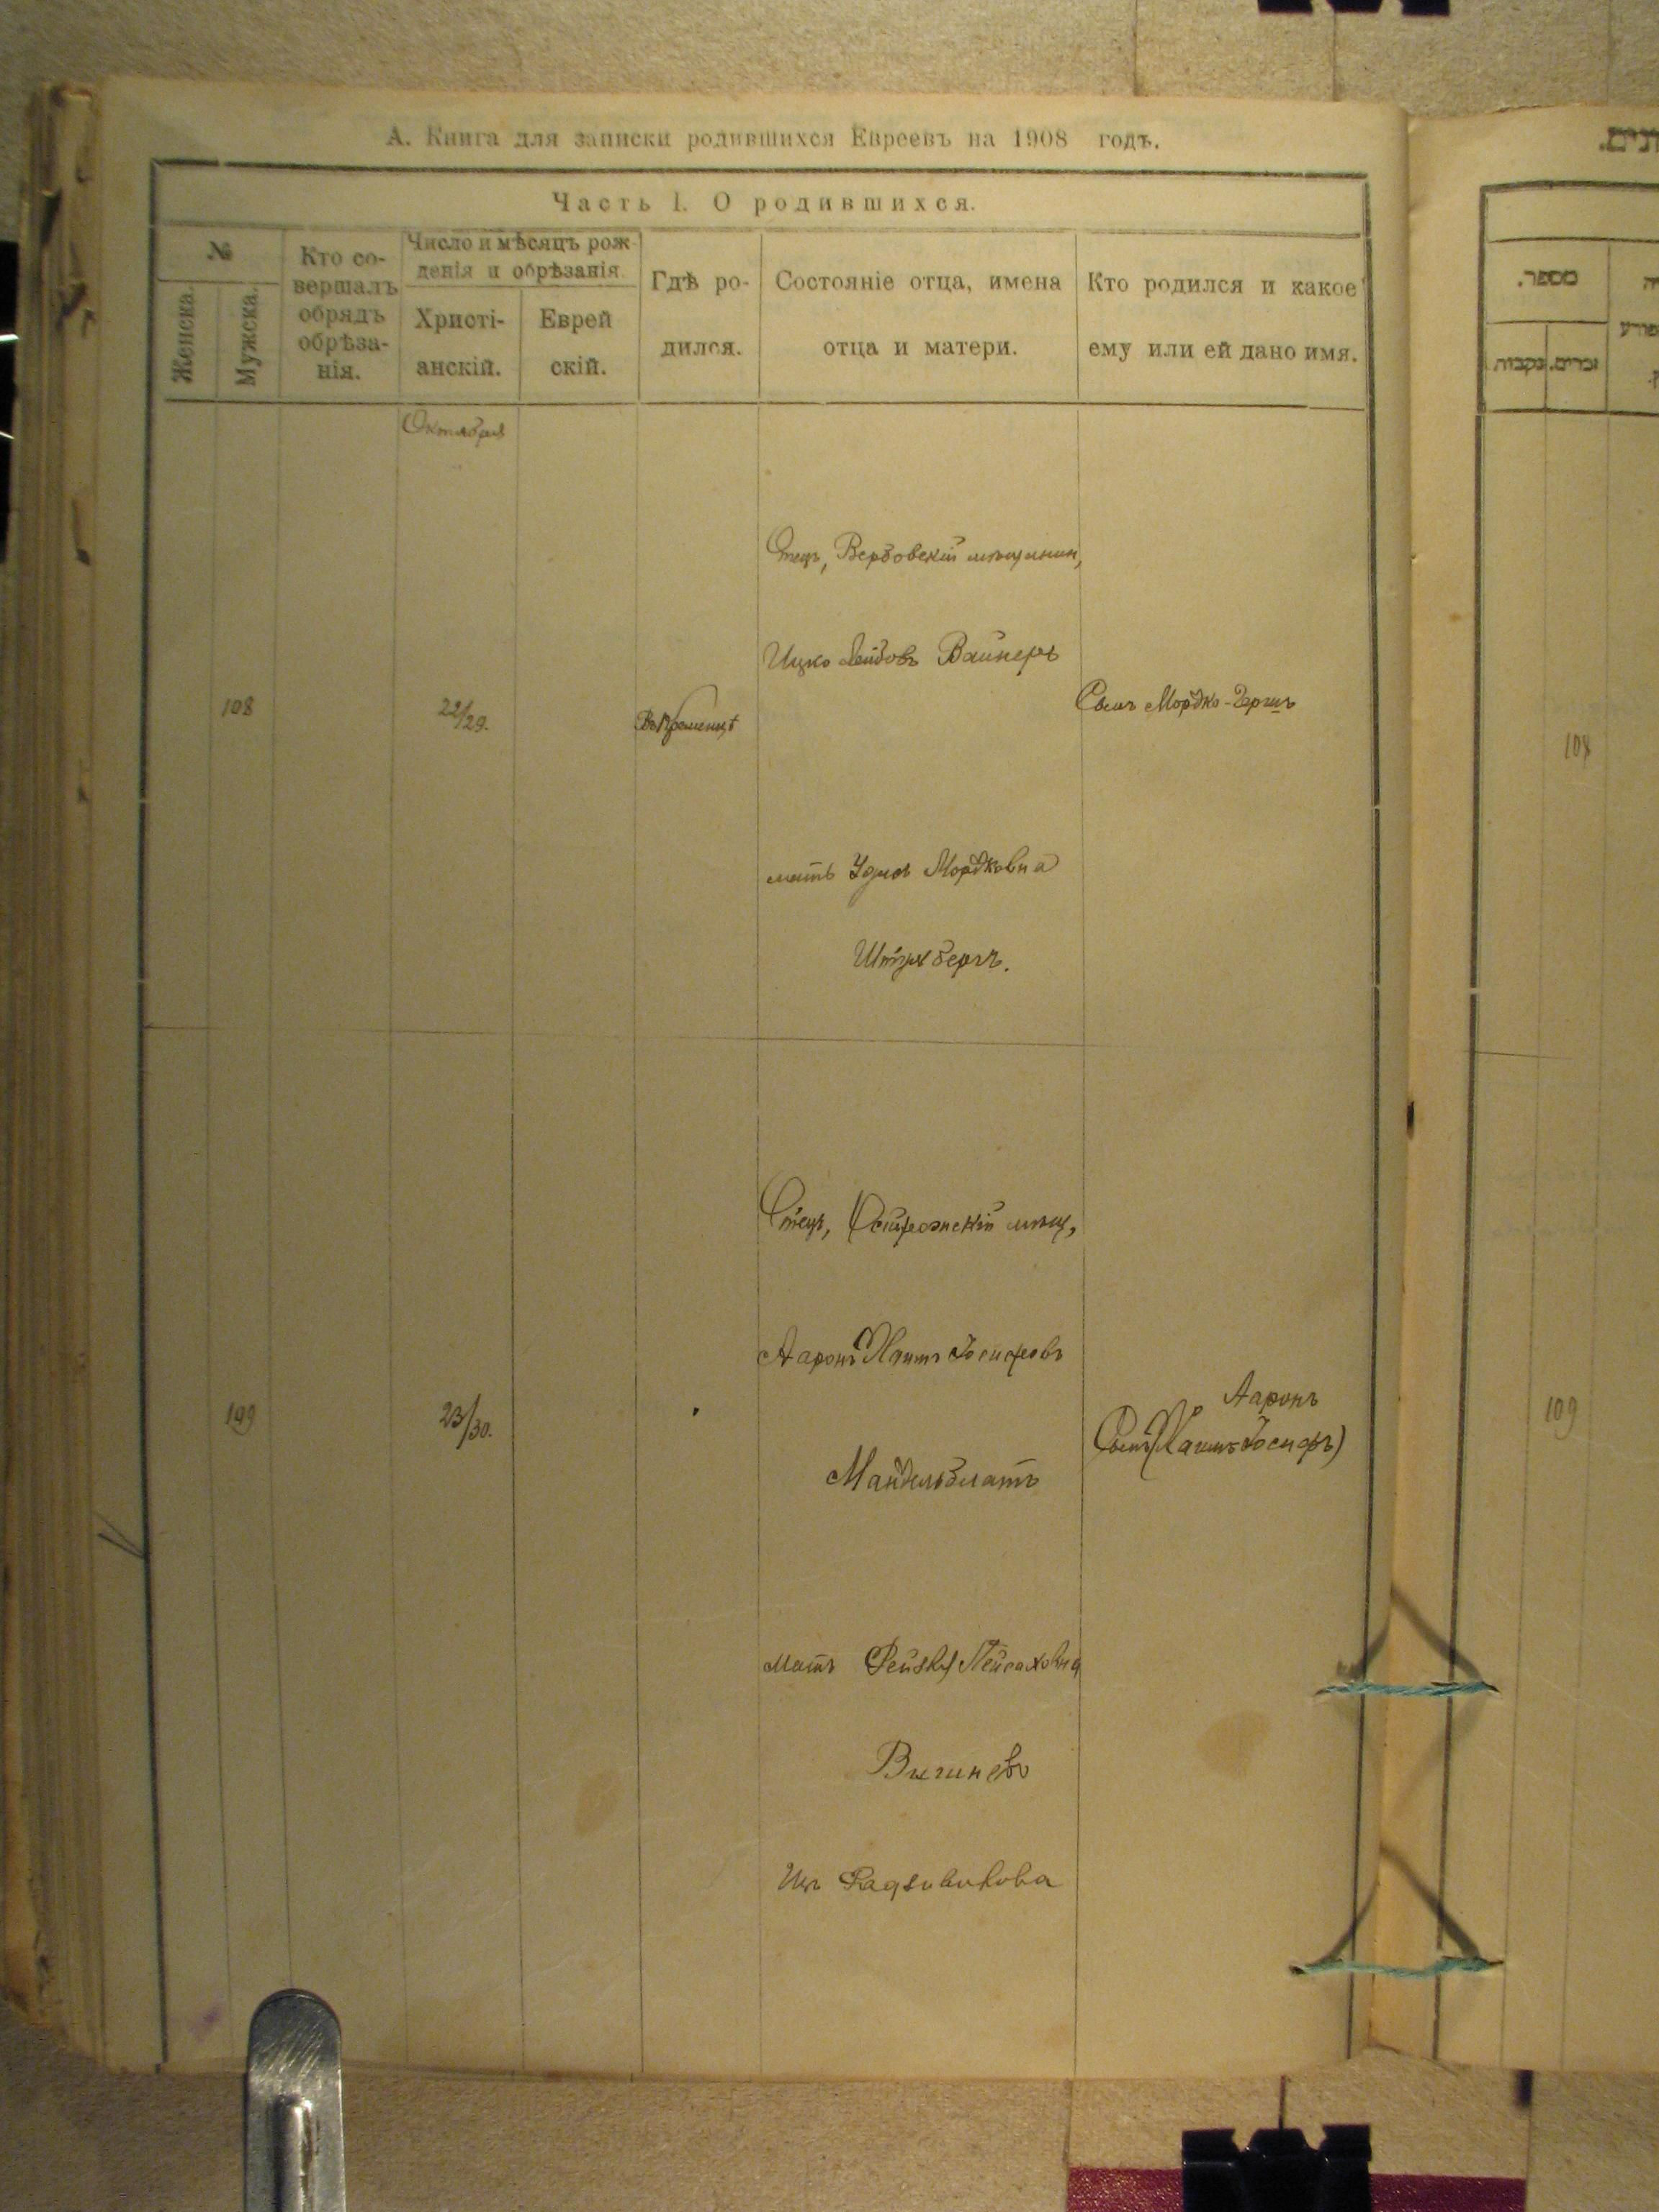 А. Книга для записки родившихся Евреевъ на 1908 годъ.
Часть I. О родившихся.
№
Женска.
Мужска.
Кто со-
вершалъ
обрядъ
обрѣза-
нія.
Число и мѣсяцъ рож
денія и обрѣзанія
Христі-
анскій.
Еврей
скій.
Гдѣ ро-
дился.
Состояніе отца, имена
отца и матери.
Кто родился и какое
ему или ей дано имя.
Октября
108
22/29.
Въ Кременцѣ
Отецъ, Вербовскій мѣщанин,
Ицко Лейбовъ Вайнеръ
мать Удля Мордковна
бергъ.
Сынъ Мордко-Гершъ
109
23/30.
Отецъ, Острожскій мѣщ,
Ааронъ Хаимъ Іосифовъ
Мандельблатъ
мать Пейсаховна
Изъ Радзивилова
Ааронъ
Сынъ (Хаимъ Іосифъ)
מספר.
זכרים.
נקבות
108
109